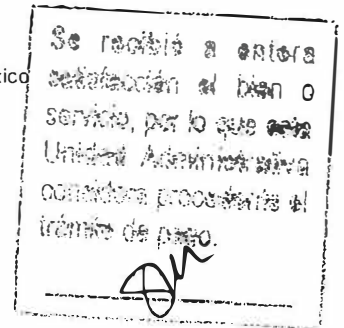 Se recibió a entera
tico satisfacción el bien o
servicio, por lo que esta
Unidad Administrativa
considera procedente el
trámite de pago.